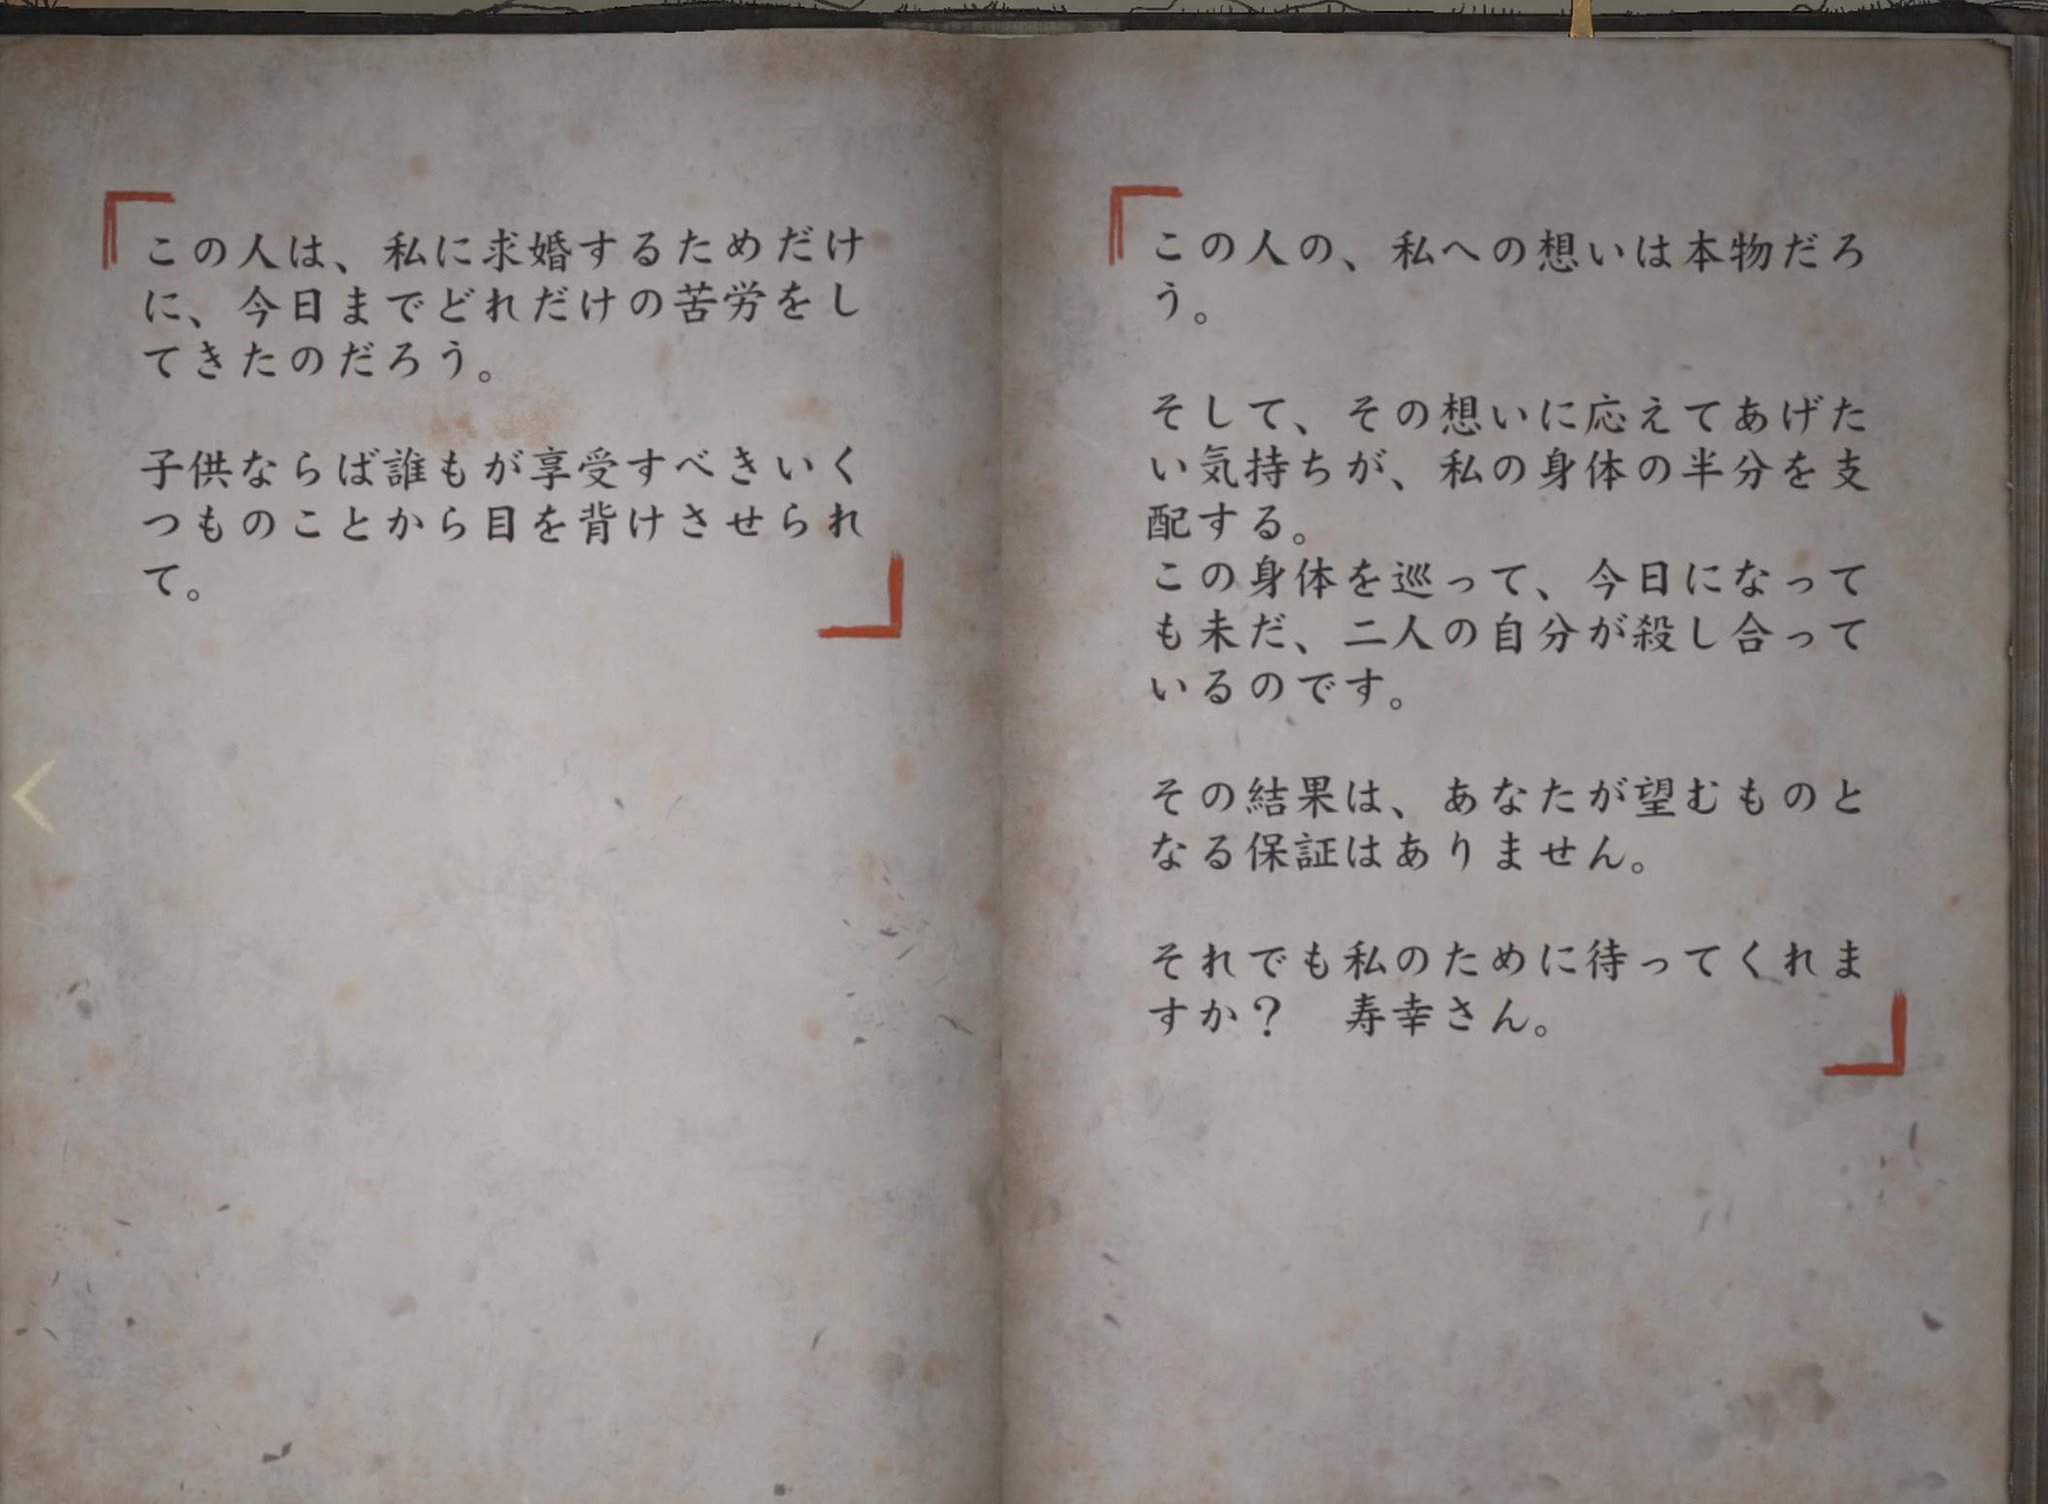 この人は、私に求婚するためだけ
に、今日までどれだけの苦労をし
てきたのだろう。
子供ならば誰もが享受すべきいく
つものことから目を背けさせられ
て。
この人の、私への想いは本物だろ
う。
そして、その想いに応えてあげた
い気持ちが、私の身体の半分を支
配する。
この身体を巡って、今日になって
も未だ、二人の自分が殺し合って
いるのです。
その結果は、あなたが望むものと
なる保証はありません。
それでも私のために待ってくれま
すか？　寿幸さん。